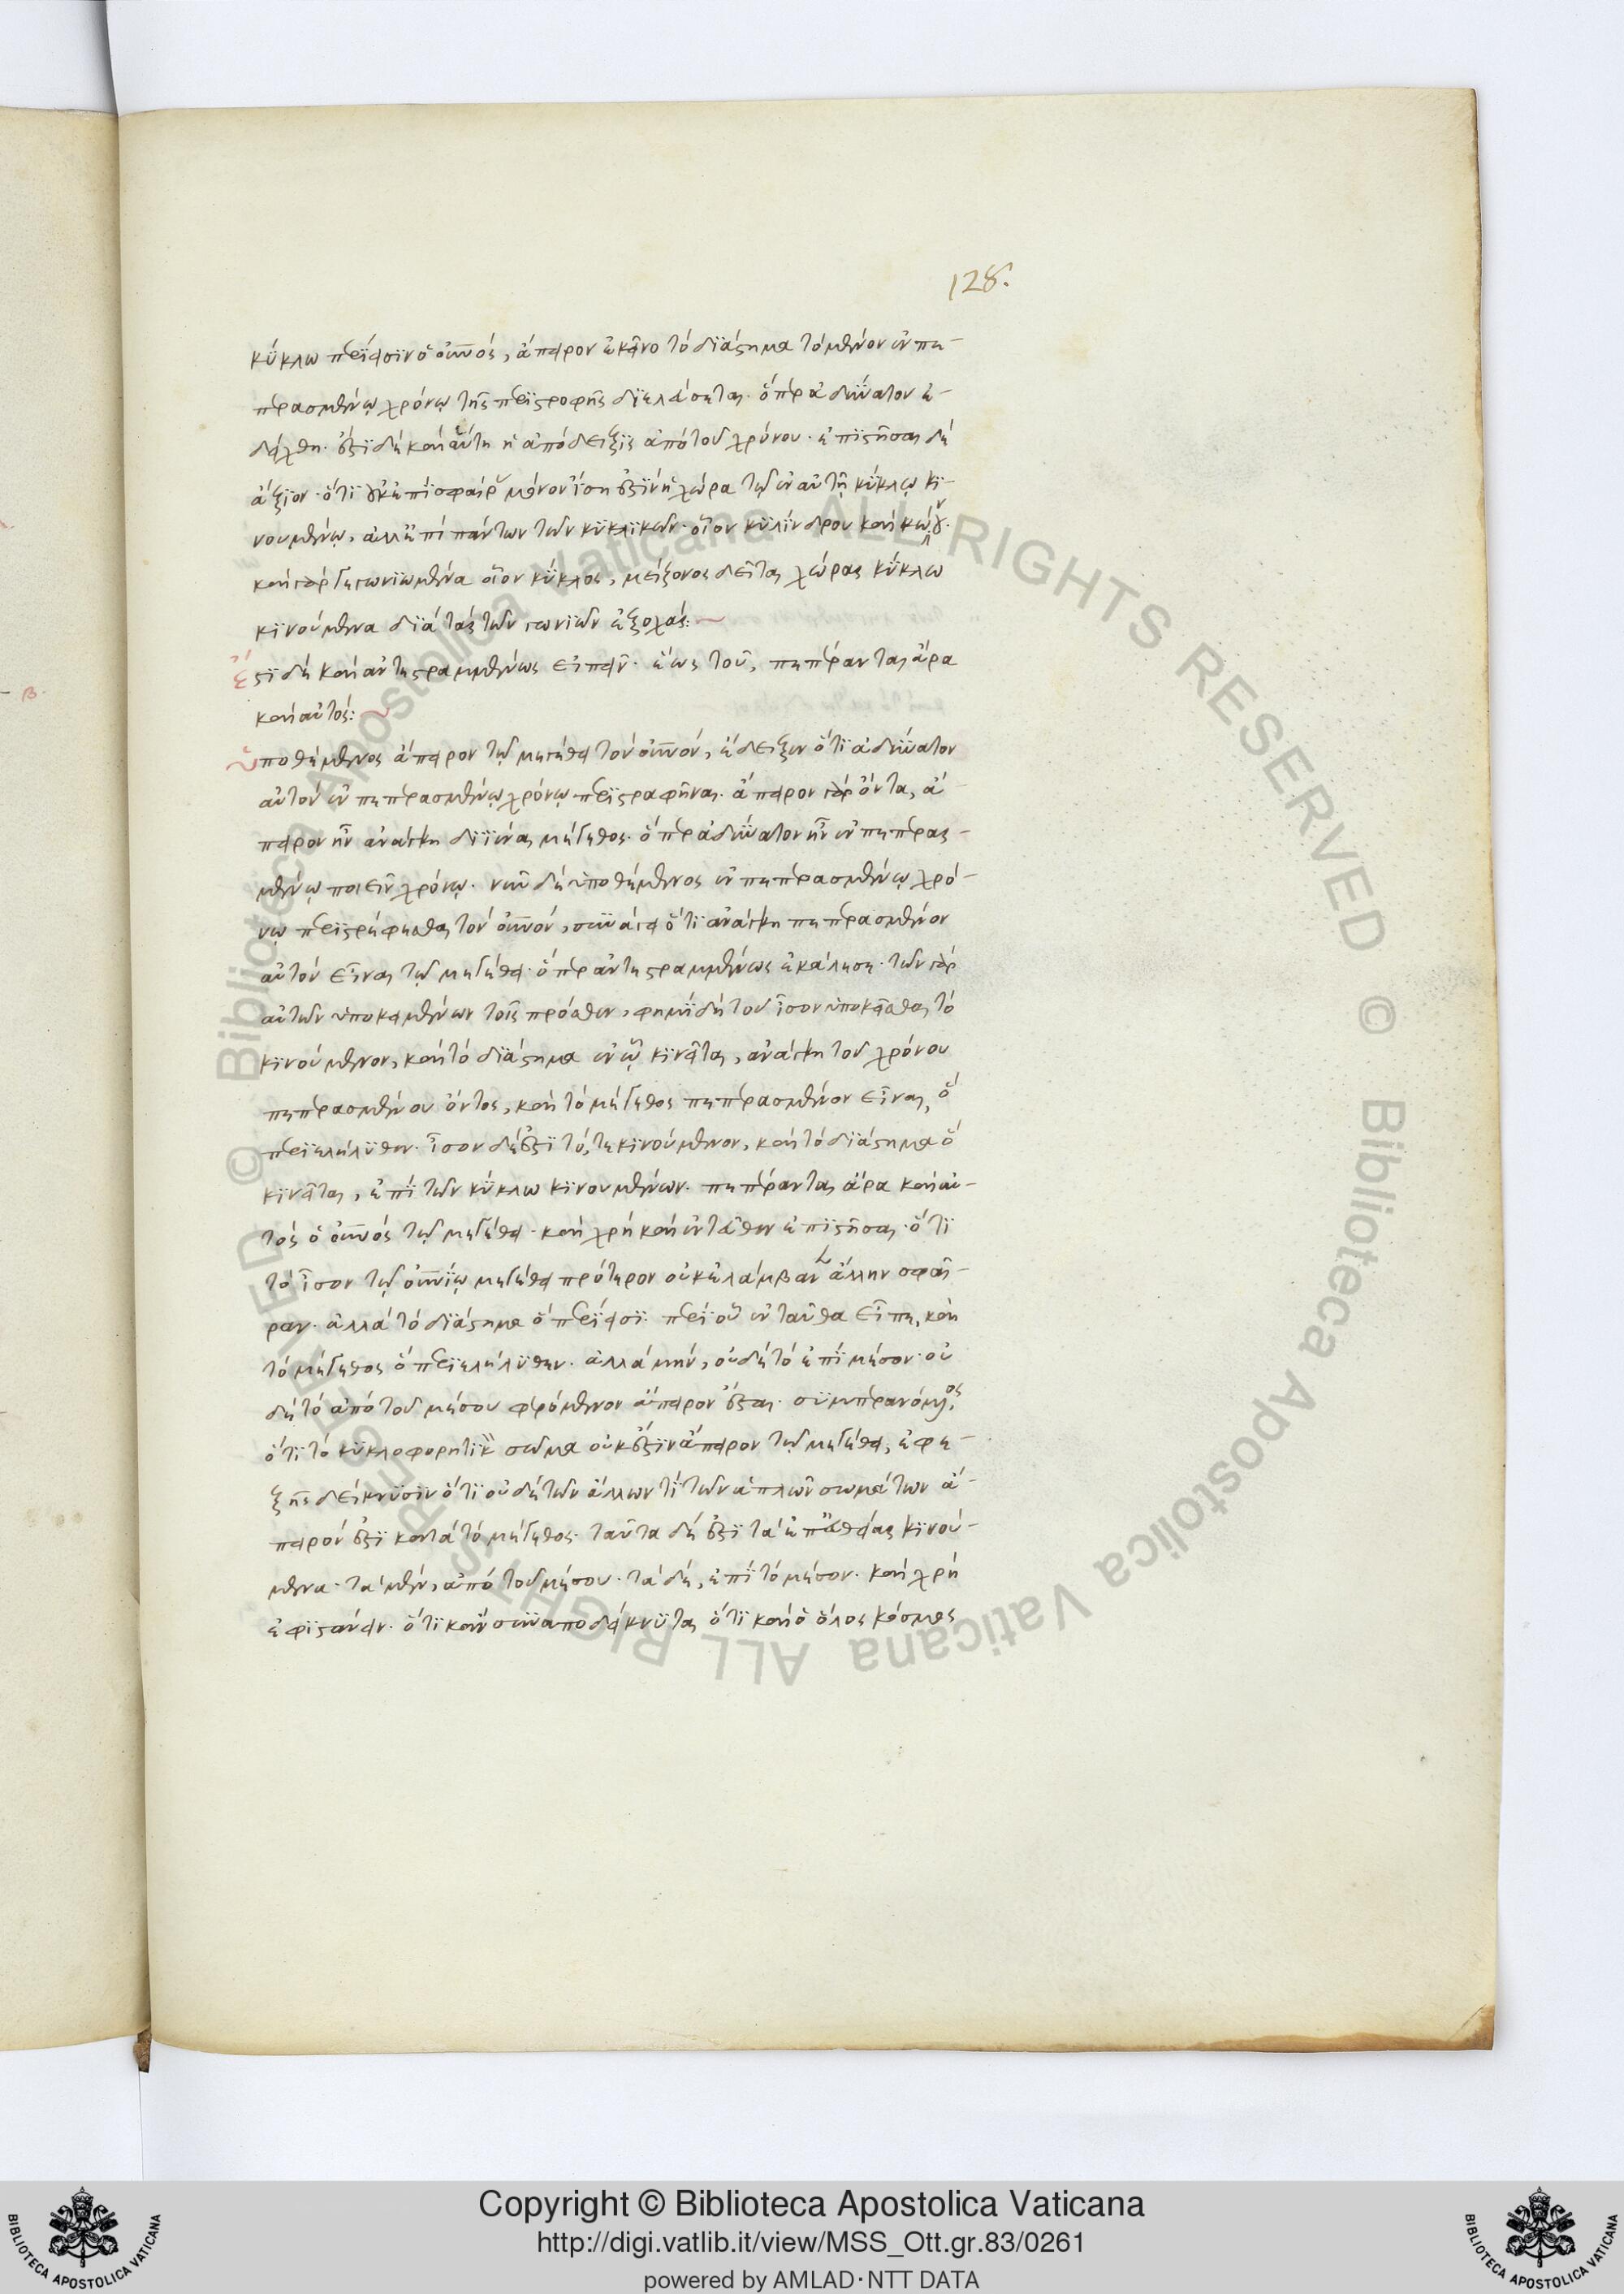 128.
κύκλω περίεισιν ὁ οὐνός, ἄπειρον ἐκεῖνο τὸ διάστημα τὸ μένον ἐν πε-
περασμένῳ χρόνῳ τῆς περιστροφῆς διελάσεται. ὅπερ ἀδύνατον ἐ-
δείχθη. ἔστι δὲ καὶ αὕτη ἡ ἀπόδειξις ἀπὸ τοῦ χρόνου. ἐπιστῆσαι δὲ
ἄξιον. ὅτι οὐκ ἐπὶ σφαίρας μόνον ἴση ἐστὶν ἡ χώρα τῷ ἐν αὐτῇ κύκλῳ κι-
νουμένῳ, ἀλλ' ἐπὶ πάντων τῶν κυκλικῶν. οἷον κυλίνδρου καὶ κώνου.
καὶ γὰρ γεγωνιωμένα οἷον κύκλος, μείζονος δεῖται χώρας κύκλω
κινούμενα διὰ τὰς τῶν γωνιῶν ἐξοχάς:
ἔστι δὲ καὶ ἀντεστραμμένως εἰπεῖν. ἕως τοῦ, πεπέρανται ἄρα
καὶ αὐτός:
ὑποθέμενος ἄπειρον τῷ μεγέθει τὸν οὐνόν, ἔδειξεν ὅτι ἀδύνατον
αὐτὸν ἐν πεπερασμένῳ χρόνῳ περιστραφῆναι. ἄπειρον γὰρ ὄντα, ἄ-
πειρον ἦν ἀνάγκη διιέναι μέγεθος. ὅπερ ἀδύνατον ἦν ἐν πεπερας-
μένῳ ποιεῖν χρόνῳ. νῦν δὲ ὑποθέμενος ἐν πεπερασμένῳ χρό-
νῳ περιστρέφεσθαι τὸν οὐνόν, συνάγει ὅτι ἀνάγκη πεπερασμένον
αὐτὸν εἶναι τῷ μεγέθει. ὅπερ ἀντεστραμμένως ἐκάλεσε. τῶν γὰρ
αὐτῶν ὑποκειμένων τοῖς πρόσθεν, φημὶ δὴ τοῦ ἴσον ὑποκεῖσθαι τὸ
κινούμενον, καὶ τὸ διάστημα ἐν ᾧ κινεῖται, ἀνάγκη τοῦ χρόνου
πεπερασμένου ὄντος, καὶ τὸ μέγεθος πεπερασμένον εἶναι, ὃ
περιελήλυθεν. ἴσον δέ ἐστι τό, τε κινούμενον, καὶ τὸ διάστημα ὃ
κινεῖται, ἐπὶ τῶν κύκλω κινουμένων. πεπέρανται ἄρα καὶ αὐ-
τὸς ὁ οὐνὸς τῷ μεγέθει. καὶ χρὴ καὶ ἐνταῦθεν ἐπιστῆσαι. ὅτι
τὸ ἴσον τῷ οὐνίῳ μεγέθει πρότερον οὐκ ἐλάμβανεν ἄλλην σφαῖ-
ραν. ἀλλὰ τὸ διάστημα ὃ περίεισι. περὶ οὗ ἐνταῦθα εἶπε, καὶ
τὸ μέγεθος ὃ περιελήλυθεν. ἀλλὰ μήν, οὐδὲ τὸ ἐπὶ μέσον. οὐ
δὲ τὸ ἀπὸ τοῦ μέσου φερόμενον ἄπειρον ἔσται. συμπερανόμενος,
ὅτι τὸ κυκλοφορητικὸν σῶμα οὐκ ἔστιν ἄπειρον τῷ μεγέθει, ἐφε-
ξῆς δείκνυσιν ὅτι οὐδὲ τῶν ἄλλων τι τῶν ἁπλῶν σωμάτων ἄ-
πειρόν ἐστι κατὰ τὸ μέγεθος. ταῦτα δέ ἐστι τὰ ἐπ' εὐθείας κινού-
μενα. τὰ μέν, ἀπὸ τοῦ μέσου. τὰ δέ, ἐπὶ τὸ μέσον. καὶ χρὴ
ἐφιστάνειν. ὅτι καὶ συναποδείκνυται ὅτι καὶ ὁ ὅλος κόσμος
β.
Copyright © Biblioteca Apostolica Vaticana
http://digi.vatlib.it/view/MSS_Ott.gr.83/0261
powered by AMLAD·NTT DATA
BIBLIOTECA APOSTOLICA VATICANA
BIBLIOTECA APOSTOLICA VATICANA
© Biblioteca Apostolica Vaticana ALL RIGHTS RESERVED © Biblioteca Apostolica Vaticana ALL RIGHTS RESERVED